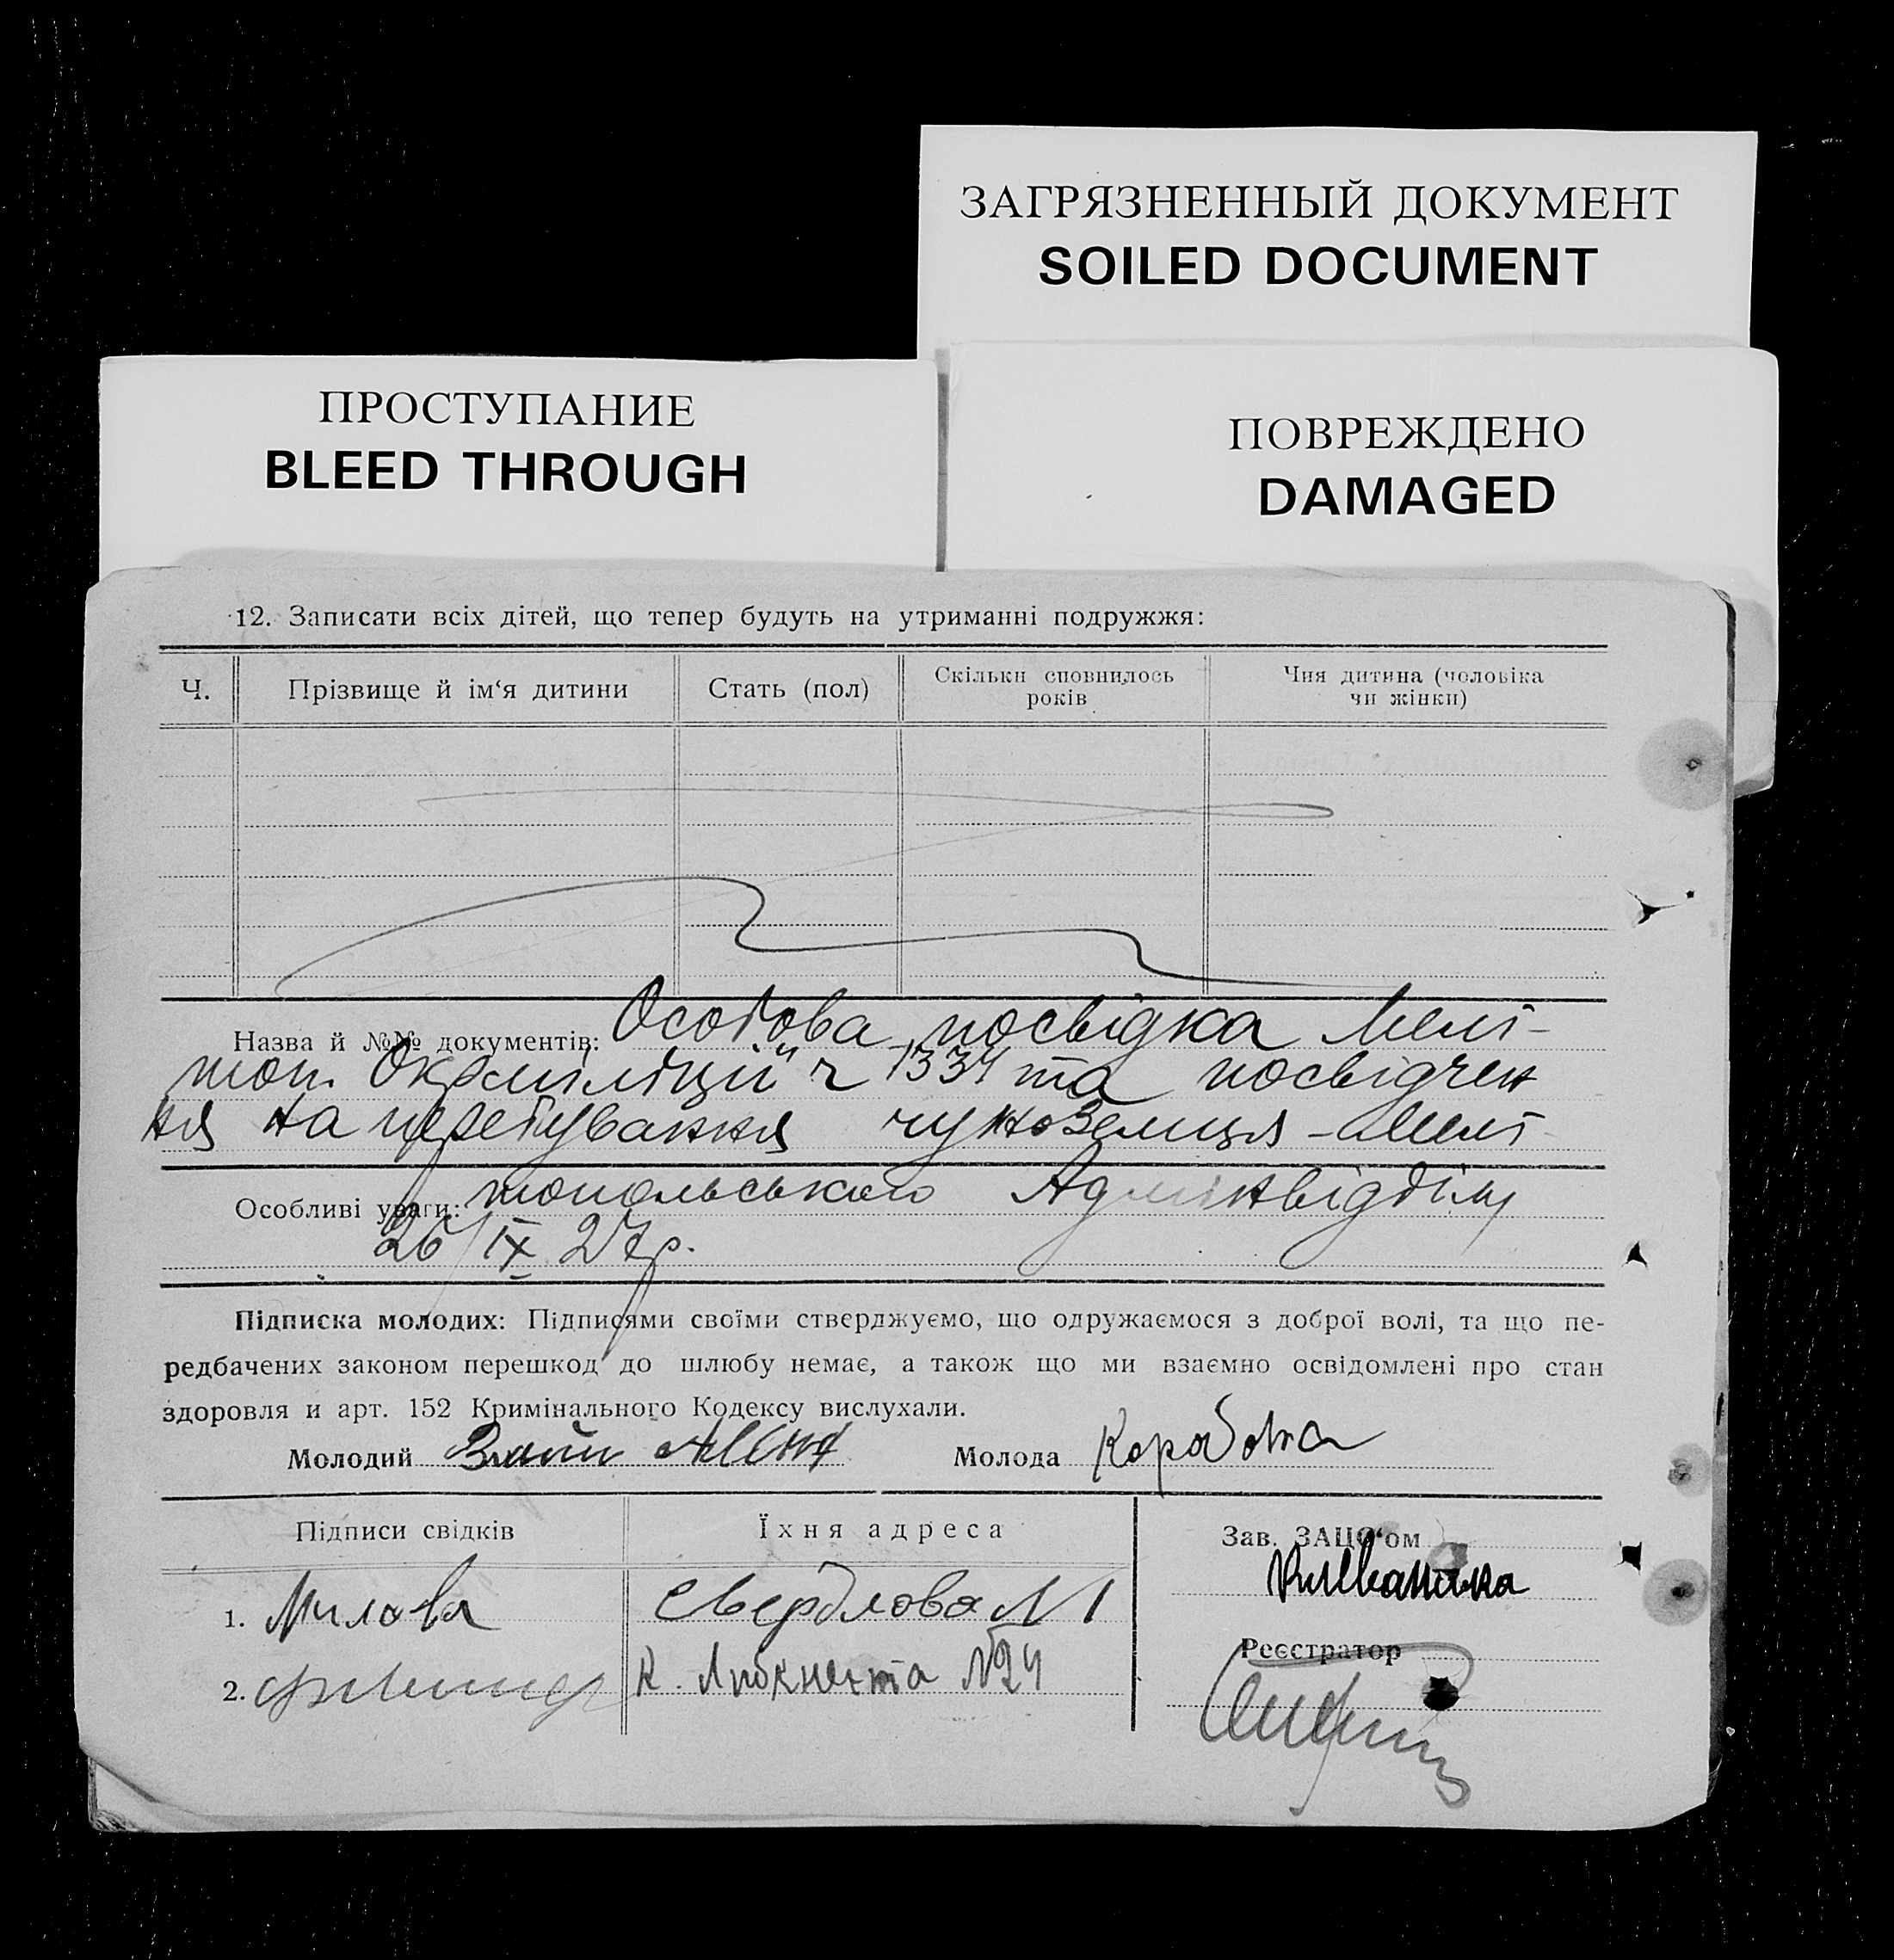 ЗАГРЯЗНЕННЫЙ ДОКУМЕНТ
SOILED DOCUMENT
ПРОСТУПАНИЕ
BLEED THROUGH
ПОВРЕЖДЕНО
DAMAGED
12. Записати всіх дітей, що тепер будуть на утриманні подружжя:
Ч. Прізвище й ім‘я дитини Стать (пол) Скільки сповнилось років Чия дитина (чоловіка чи жінки)
Назва й №№ документів: Особова посвідка Мелі-
топ. Окрміліції ч 1334 та посвідчен
ня на перебування чужоземця - Мелі
Особливі уваги: топольського Адмінвідділу
26/IX 27р.
Підписка молодих: Підписями своїми стверджуємо, що одружаємося з доброї волі, та що пе-
редбачених законом перешкод до шлюбу немає, а також що ми взаємно освідомлені про стан
здоровля и арт. 152 Кримінального Кодексу вислухали.
Молодий Молода Коробова
Підписи свідків Їхня адреса Зав. ЗАЦС‘ом
1. Милова Свердлова N 1
Реєстратор
2. К. Либкнехта №24